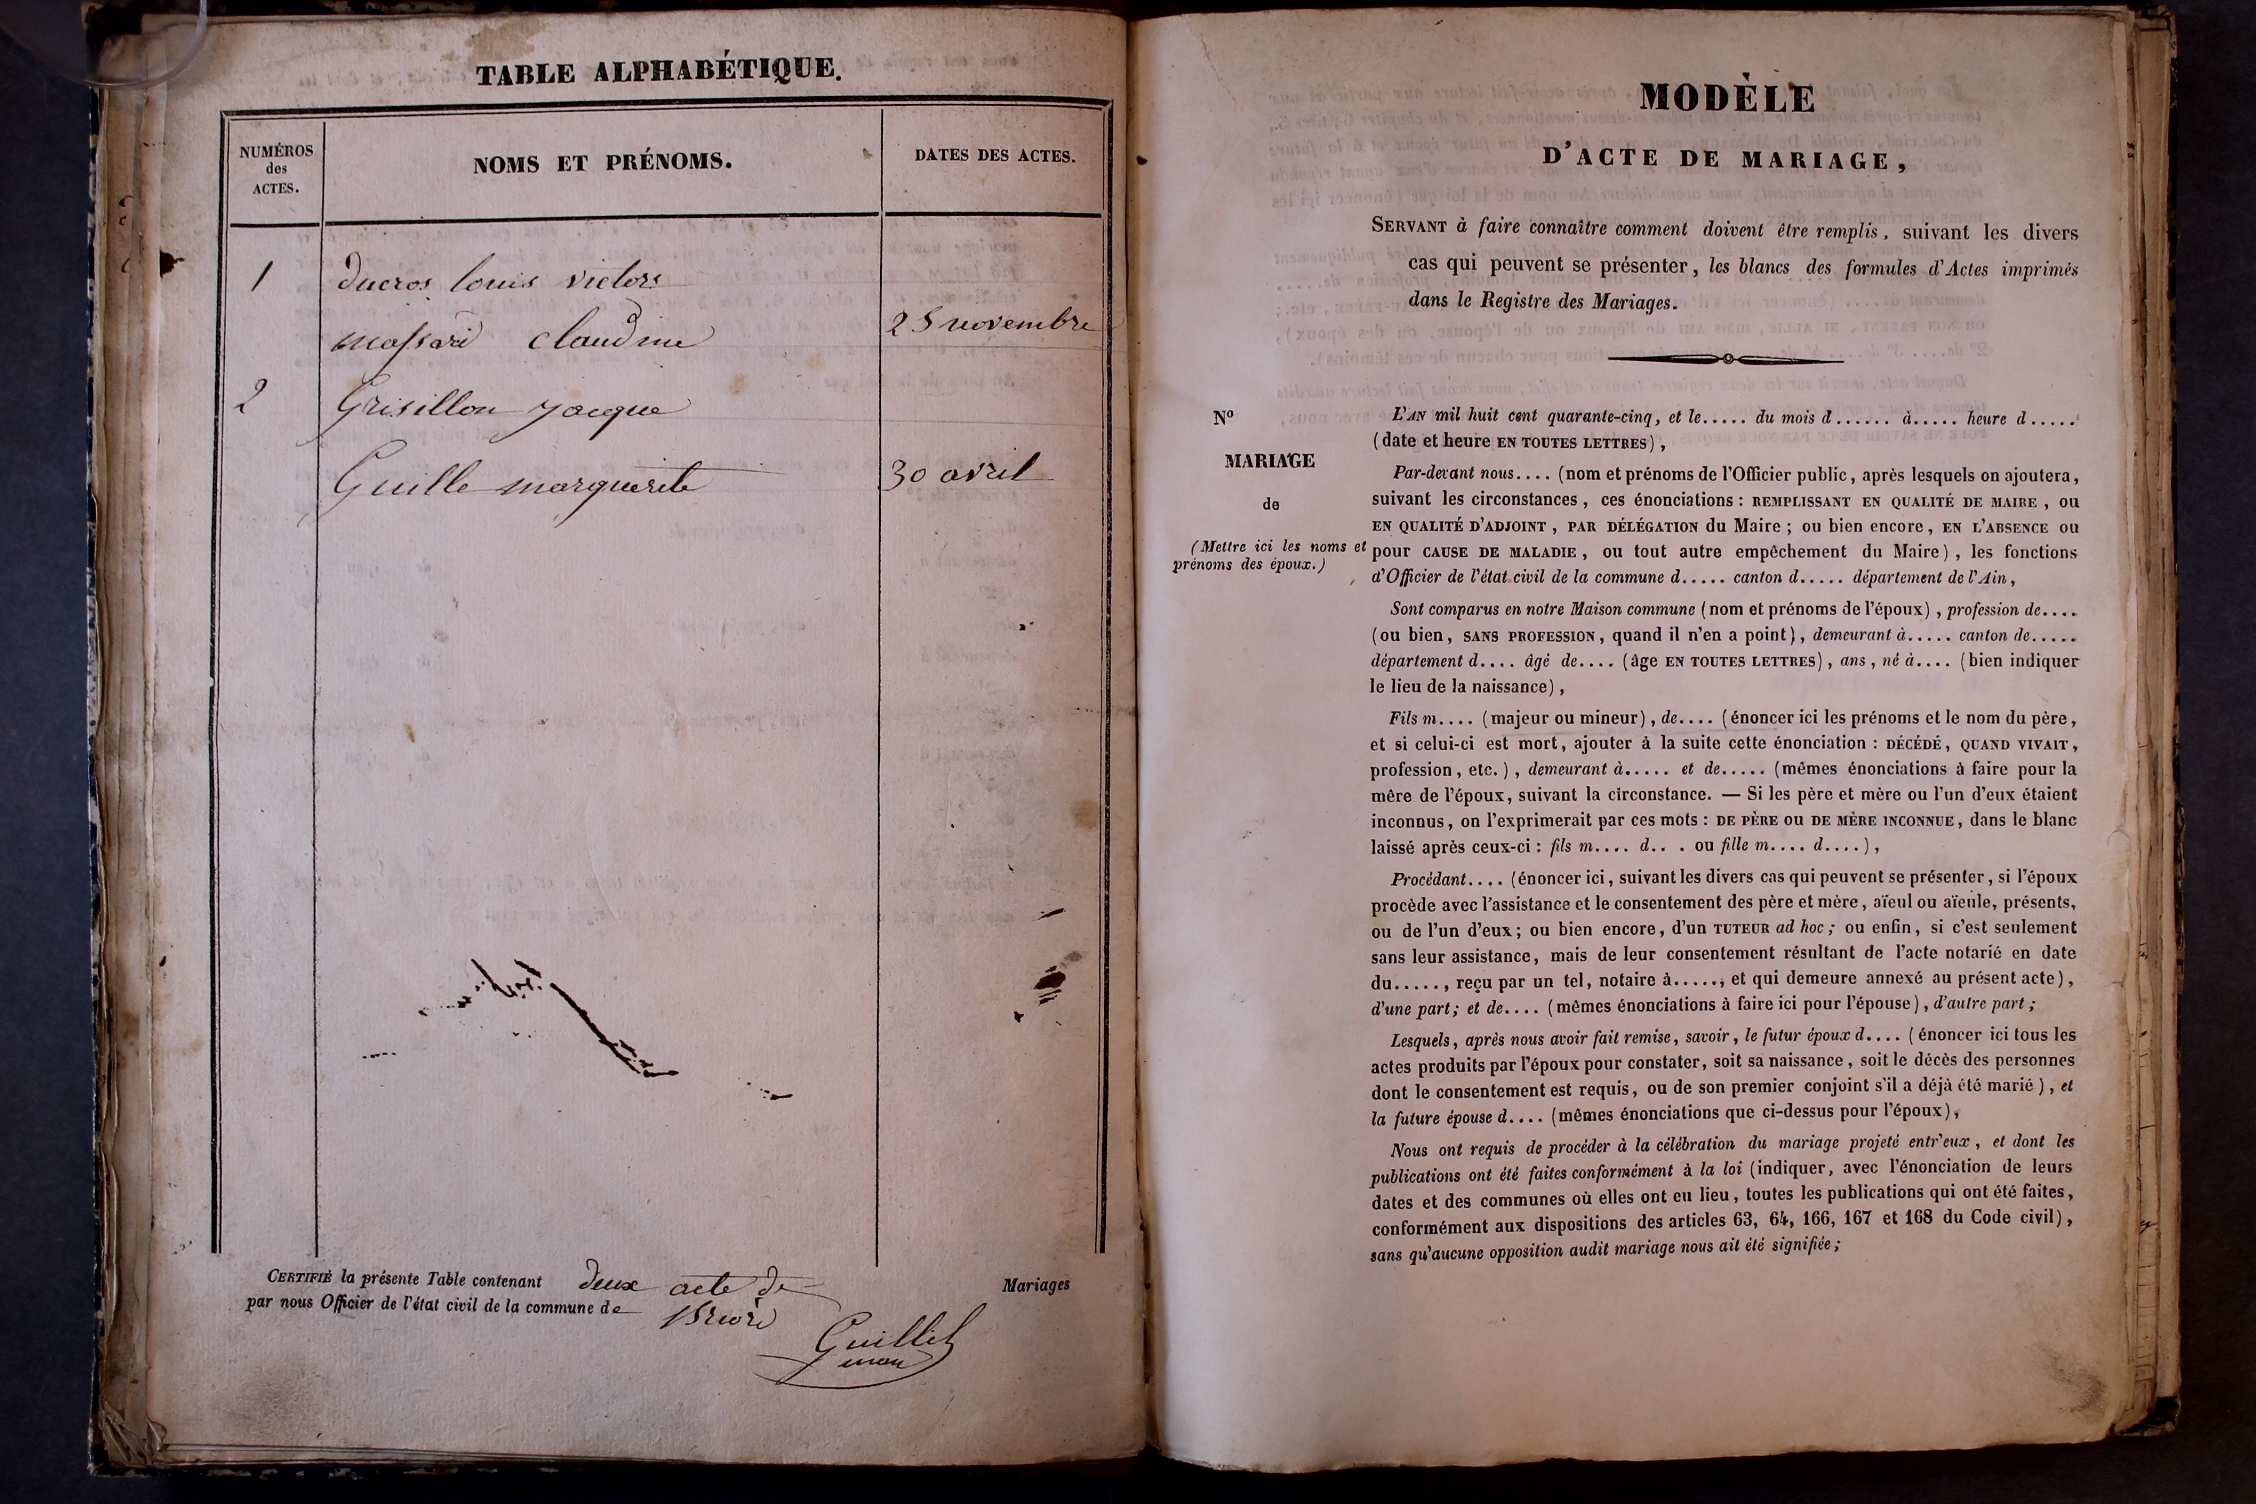 TABLE ALPHABÉTIQUE.
NUMÉROS
des
ACTES.
NOMS ET PRÉNOMS.
DATES DES ACTES.
1 ducros louis victors
massari claudine 25 novembre
2 Grisillon jacque
Guille marguerite 30 avril
CERTIFIÉ la présente Table contenant deux acte de Mariages
par nous Officier de l'état civil de la commune de
Guillet
MODÈLE
D'ACTE DE MARIAGE,
SERVANT à faire connaître comment doivent être remplis, suivant les divers
cas qui peuvent se présenter, les blancs des formules d'Actes imprimés
dans le Registre des Mariages.
No
MARIAGE
de
(Mettre ici les noms et
prénoms des époux.)
L'AN mil huit cent quarante-cinq, et le..... du mois d...... à..... heure d.....
(date et heure EN TOUTES LETTRES),
Par-devant nous.... (nom et prénoms de l'Officier public, après lesquels on ajoutera,
suivant les circonstances, ces énonciations : REMPLISSANT EN QUALITÉ DE MAIRE, OU
EN QUALITÉ D'ADJOINT, PAR DÉLÉGATION du Maire; ou bien encore, EN L'ABSENCE OU
pour CAUSE DE MALADIE, ou tout autre empêchement du Maire), les fonctions
d'Officier de l'état civil de la commune d..... canton d..... département de l'Ain,
Sont comparus en notre Maison commune (nom et prénoms de l'époux), profession de....
(ou bien, SANS PROFESSION, quand il n'en a point), demeurant à..... canton de.....
département d.... âgé de.... (âge EN TOUTES LETTRES), ans, né à.... (bien indiquer
le lieu de la naissance),
Fils m.... (majeur ou mineur), de.... (énoncer ici les prénoms et le nom du père,
et si celui-ci est mort, ajouter à la suite cette énonciation : DÉCÉDÉ, QUAND VIVAIT,
profession, etc.), demeurant à..... et de..... (mêmes énonciations à faire pour la
mère de l'époux, suivant la circonstance. — Si les père et mère ou l'un d'eux étaient
inconnus, on l'exprimerait par ces mots : DE PÈRE OU DE MÈRE INCONNUE, dans le blanc
laissé après ceux-ci : fils m.... d.. . ou fille m.... d....),
Procédant.... (énoncer ici, suivant les divers cas qui peuvent se présenter, si l'époux
procède avec l'assistance et le consentement des père et mère, aïeul ou aïeule, présents,
ou de l'un d'eux; ou bien encore, d'un TUTEUR ad hoc; ou enfin, si c'est seulement
sans leur assistance, mais de leur consentement résultant de l'acte notarié en date
du....., reçu par un tel, notaire à....., et qui demeure annexé au présent acte),
d'une part; et de.... (mêmes énonciations à faire ici pour l'épouse), d'autre part;
Lesquels, après nous avoir fait remise, savoir, le futur époux d.... (énoncer ici tous les
actes produits par l'époux pour constater, soit sa naissance, soit le décès des personnes
dont le consentement est requis, ou de son premier conjoint s'il a déjà été marié), et
la future épouse d.... (mêmes énonciations que ci-dessus pour l'époux),
Nous ont requis de procéder à la célébration du mariage projeté entr'eux, et dont les
publications ont été faites conformément à la loi (indiquer, avec l'énonciation de leurs
dates et des communes où elles ont eu lieu, toutes les publications qui ont été faites,
conformément aux dispositions des articles 63, 64, 166, 167 et 168 du Code civil),
sans qu'aucune opposition audit mariage nous ait été signifiée;